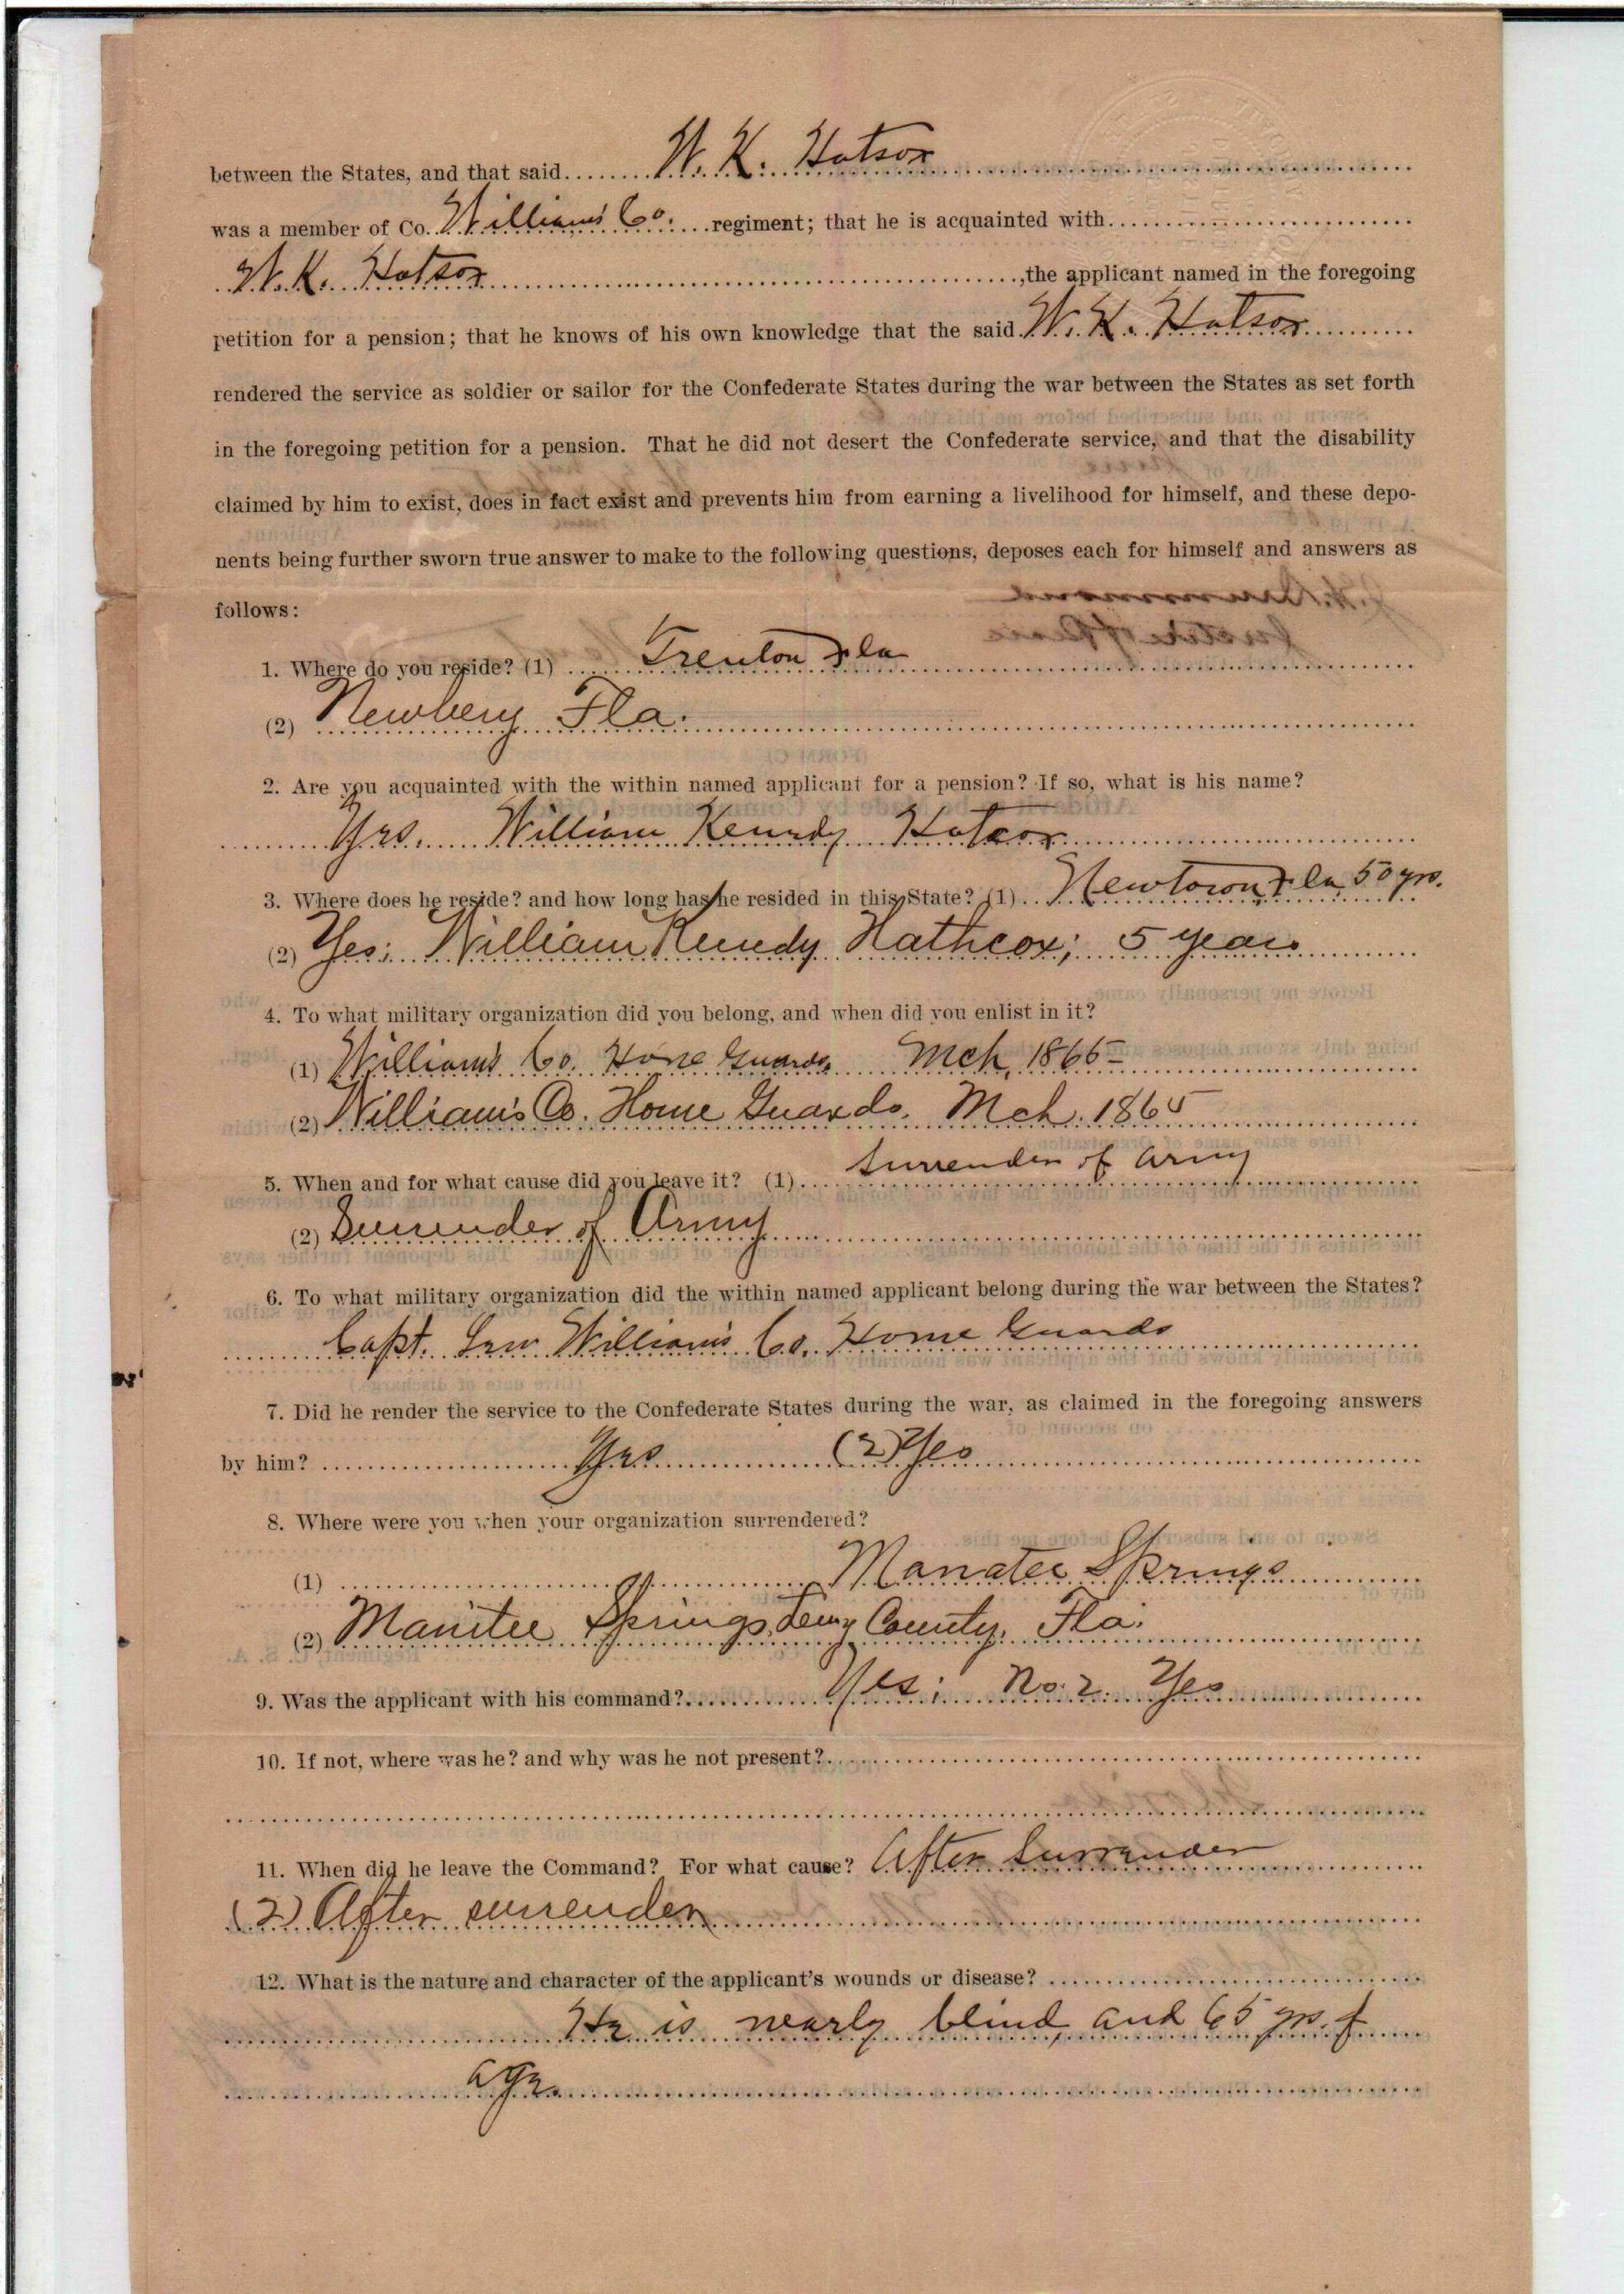 between the States, and that said W. K. Hatcox
was a member of Co. William's Co. regiment; that he is acquainted with
W. K. Hatcox, the applicant named in the foregoing
petition for a pension; that he knows of his own knowledge that the said W. K. Hatcox
rendered the service as soldier or sailor for the Confederate States during the war between the States as set forth
in the foregoing petition for a pension. That he did not desert the Confederate service, and that the disability
claimed by him to exist, does in fact exist and prevents him from earning a livelihood for himself, and these depo-
nents being further sworn true answer to make to the following questions, deposes each for himself and answers as
follows:
1. Where do you reside? (1) Trenton Fla
(2) Newbery Fla.
2. Are you acquainted with the within named applicant for a pension? If so, what is his name?
Yes. William Kenndy Hatcox
3. Where does he reside? and how long has he resided in this State? (1) Newtown Fla 50 yrs.
(2) Yes; William Kenedy Hathcox; 5 years
4. To what military organization did you belong, and when did you enlist in it?
(1) William's Co. Home Guards Mch, 1865
(2) William's Co. Home Guards. Mch. 1865
5. When and for what cause did you leave it? (1) Surrender of Army
(2) Surrender of Army
6. To what military organization did the within named applicant belong during the war between the States?
Capt. William's Co. Home Guards
7. Did he render the service to the Confederate States during the war, as claimed in the foregoing answers
by him? Yes (2) Yes
8. Where were you when your organization surrendered?
(1) Manatee Springs
(2) Manitee Springs, Levy County, Fla.
9. Was the applicant with his command? Yes; No. 2. Yes
10. If not, where was he? and why was he not present?
11. When did he leave the Command? For what cause? After Surrender
(2) After surrender
12. What is the nature and character of the applicant's wounds or disease?
He is nearly blind, and 65 yrs. of
age.